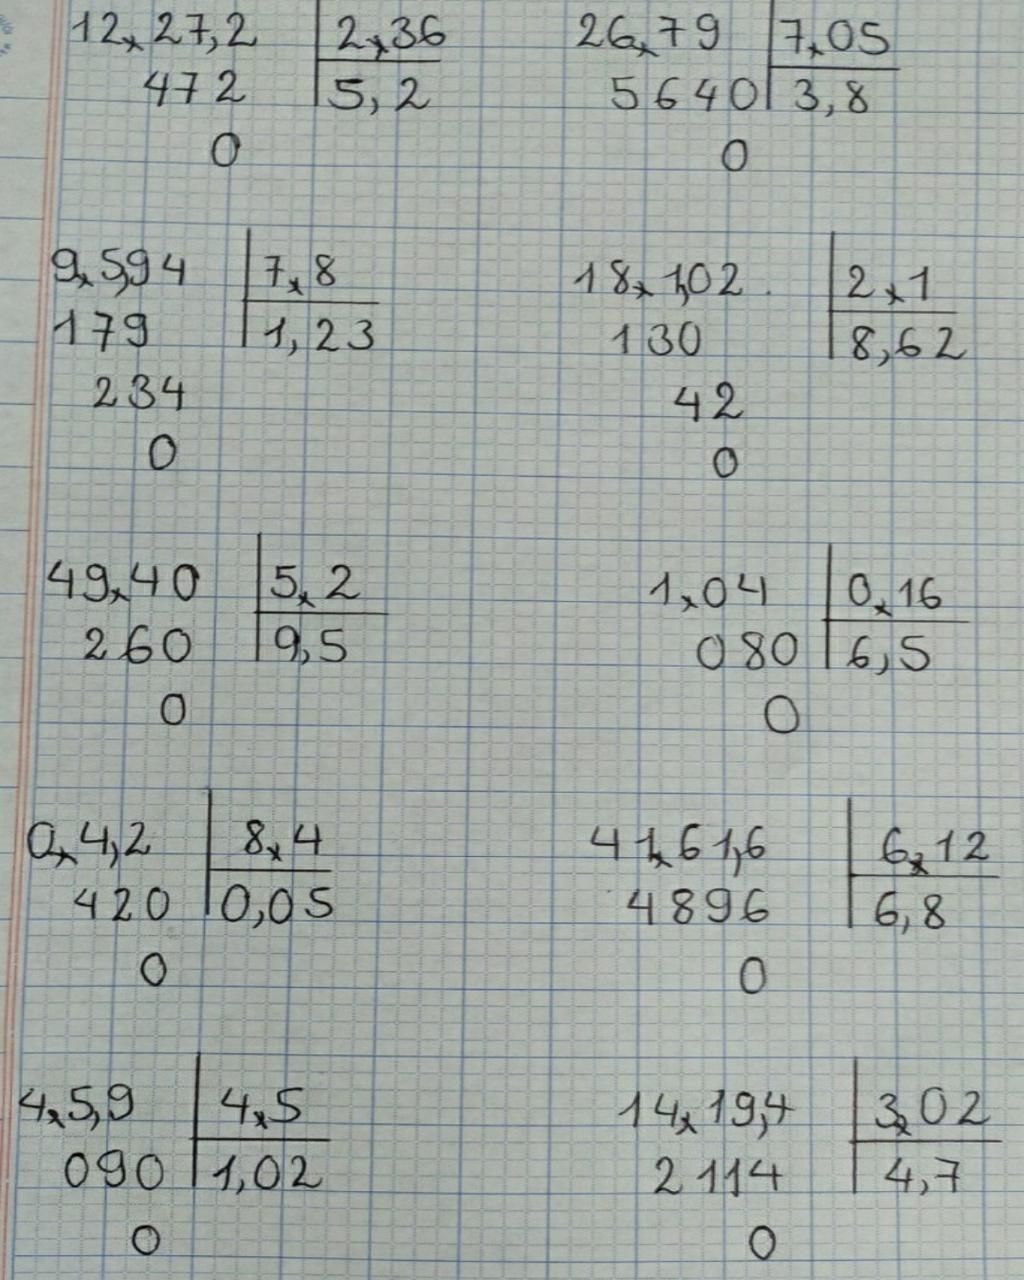 12,27,2 2,36
472 5,2
0
26,79 7,05
5640 3,8
0
9,5,94 7,8
179 1,23
234
0
18,1,02 2,1
130 8,62
42
0
49,40 5,2
260 9,5
0
1,04 0,16
080 6,5
0
0,4,2 8,4
420 0,05
0
41,61,6 6,12
4896 6,8
0
4,5,9 4,5
090 1,02
0
14,19,4 3,02
2114 4,7
0